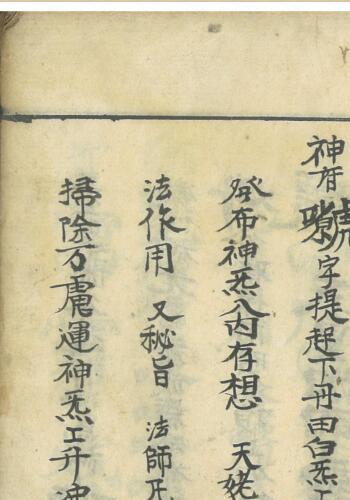 神府㘔字提起下丹田白炁工
發布神炁八内存想 天姥
法作用 又秘旨 法師
掃除万慮運神炁工升